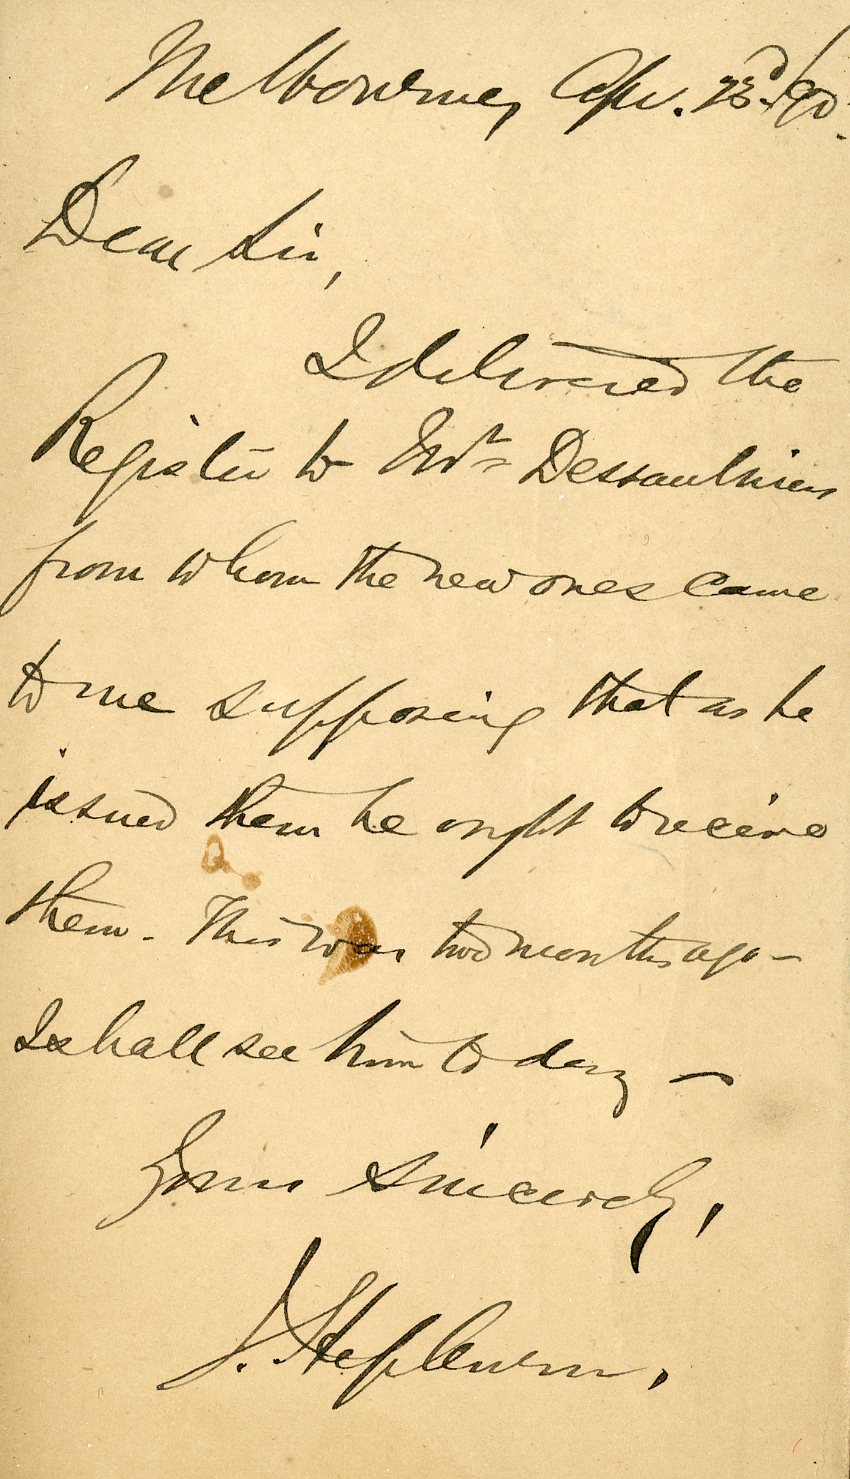 Melbourne, Apr. 23rd/90.
Dear Sir,
I delivered the
Register to Mr. Dessaulniers
from whom the new ones came
to me supposing that as he
issued them he ought to receive
them. This was two months ago –
I shall see him to day –
Yours Sincerely,
J. Hepburn.